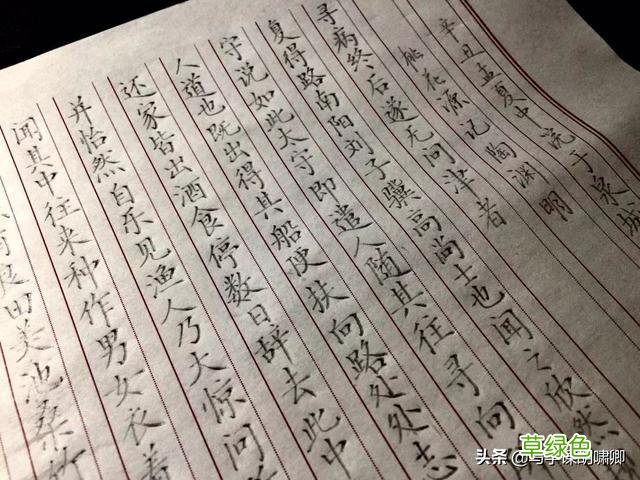 有良田美池桑竹
闻其中往来种作男女衣着
并怡然自乐见渔人乃大惊问
还家皆出酒食停数日辞去此中
人道也既出得其船便扶向路处处志
守说如此太守即遣人随其往寻向
复得路南阳刘子骥高尚士也闻之欣然
寻病终后遂无问津者
桃花源记 陶渊明
辛丑孟夏中浣于泉城
草绿色
头条 @写字课胡啸卿